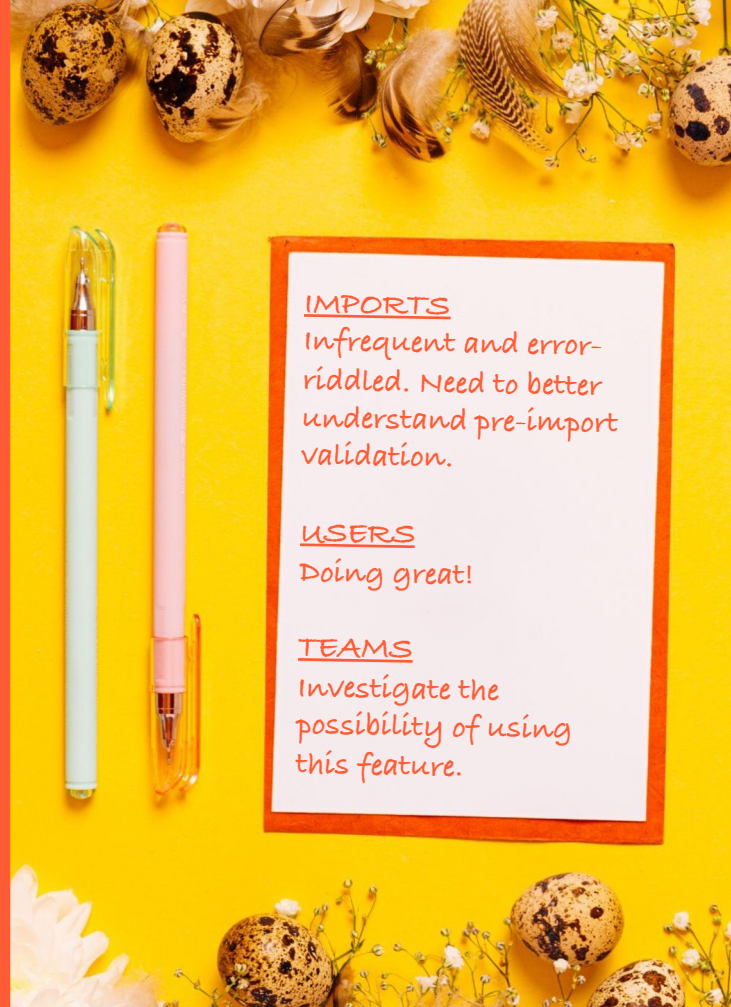 IMPORTS
Infrequent and error-
riddled. Need to better
understand pre-import
validation.
USERS
Doing great!
TEAMS
Investigate the
possibility of using
this feature.